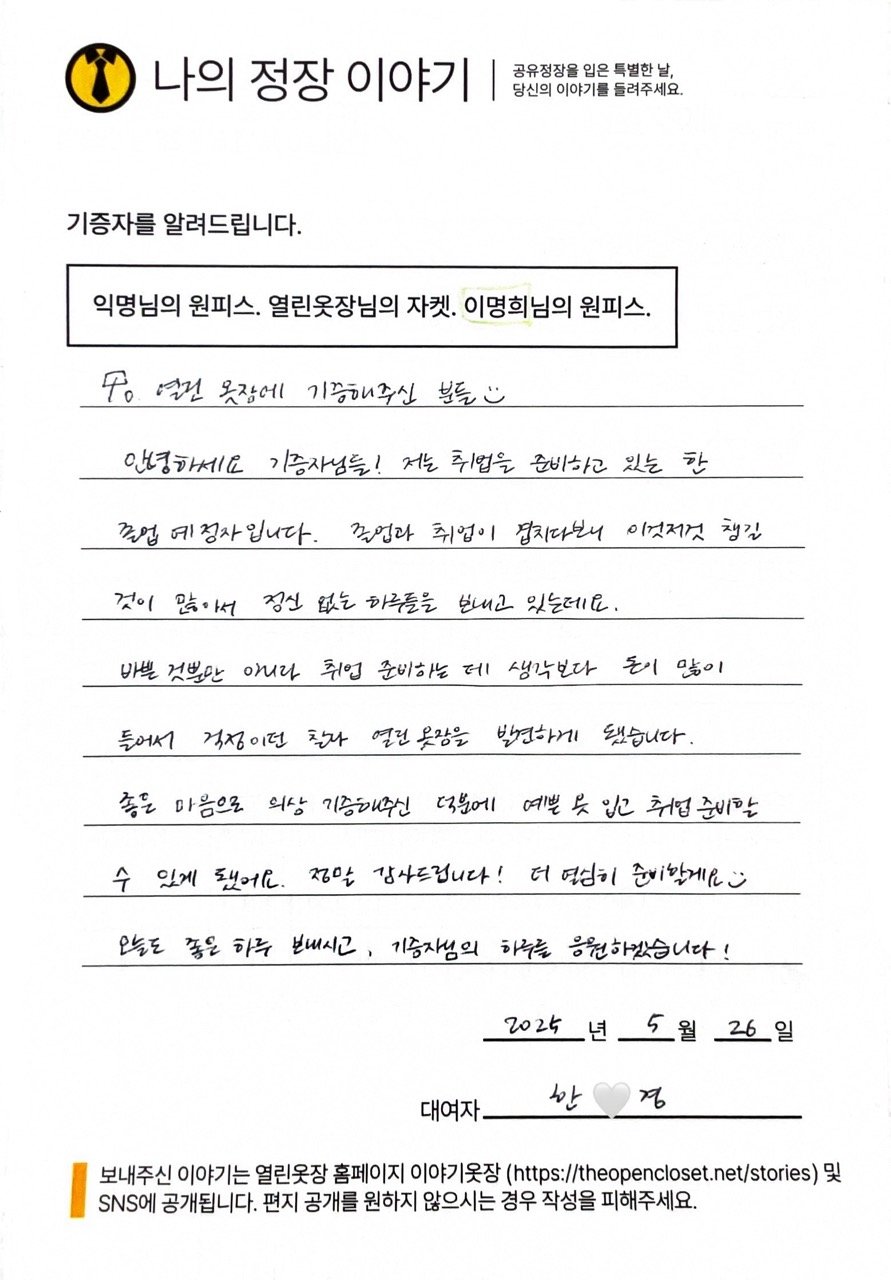 나의 정장 이야기
공유정장을 입은 특별한 날,
당신의 이야기를 들려주세요.
기증자를 알려드립니다.
익명님의 원피스. 열린옷장님의 자켓. 이명희님의 원피스.
To. 열린 옷장에 기증해주신 분들
안녕하세요 기증자님들! 저는 취업을 준비하고 있는 한
졸업 예정자입니다. 졸업과 취업이 겹치다보니 이것저것 챙길
것이 많아서 정신 없는 하루들을 보내고 있는데요.
바쁠 것뿐만 아니라 취업 준비하는 데 생각보다 돈이 많이
들어서 걱정이던 찰나 열린 옷장을 발견하게 됐습니다.
좋은 마음으로 의상 기증해주신 덕분에 예쁜 옷 입고 취업 준비할
수 있게 됐어요. 정말 감사드립니다! 더 열심히 준비할게요
오늘도 좋은 하루 보내시고, 기증자님의 하루를 응원하겠습니다!
2025 년 5 월 26 일
대여자 한 경
보내주신 이야기는 열린옷장 홈페이지 이야기옷장 (https://theopencloset.net/stories) 및
SNS에 공개됩니다. 편지 공개를 원하지 않으시는 경우 작성을 피해주세요.